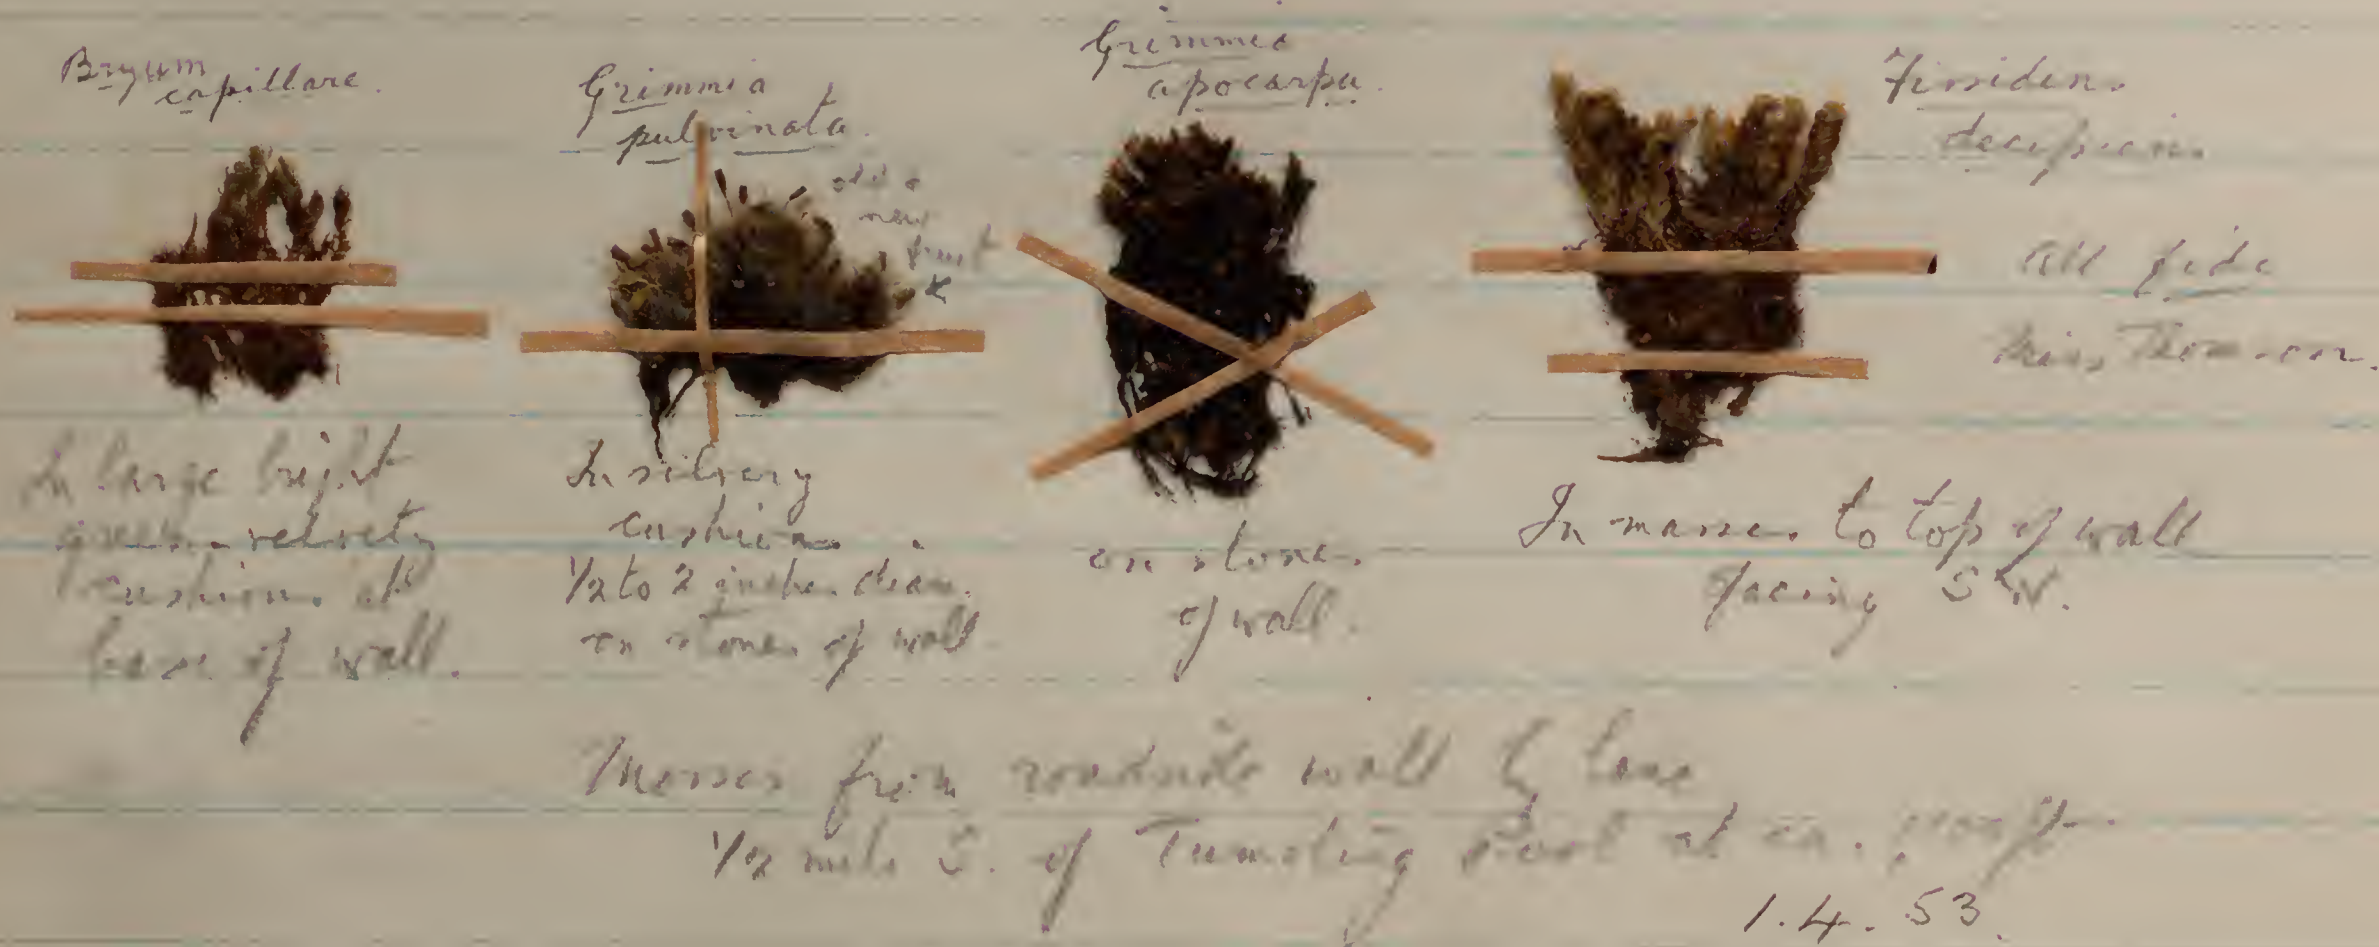 Bryum
capillare.
Grimmia
pulvinata.
old &
new
fruit
Grimmia
apocarpa.
Fissidens
decipiens
All fide
Miss Thomson.
In large bright
green velvety
cushions at
base of wall.
In silvery
cushions
1/2 to 2 inches diam.
on stones of wall
on stones
of wall.
In masses to top of wall
facing SW.
Mosses from roadside wall by lane
1/2 mile S. of Tumbling at ca.
1.4.53.